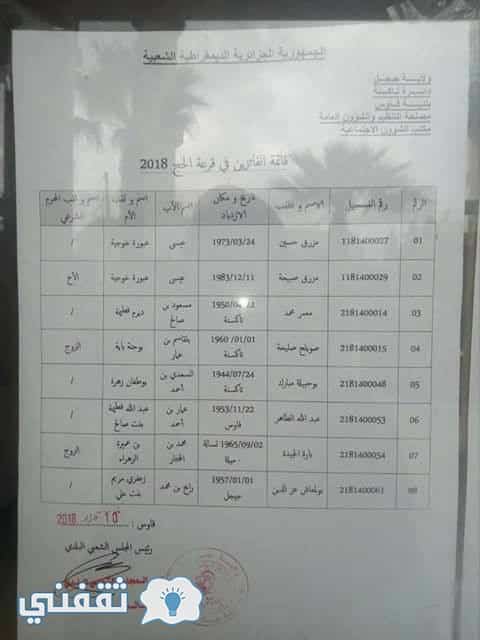 الجمهورية الجزائرية الديمقراطية الشعبية
ولاية جيجل
دائرة تاكسنة
بلدية قاوس
مصلحة التنظيم والشؤون العامة
مكتب الشؤون الاجتماعية
قائمة الفائزين في قرعة الحج 2018
الرقم رقم التسجيل الاسم و اللقب تاريخ و مكان الازدياد اسم الأب اسم و لقب الأم اسم و لقب المحرم الشرعي
01 1181400027 مزرق حسين 1973/03/24 عيسى عبورة خوجية /
02 1181400029 مزرق صبيحة 1983/12/11 عيسى عبورة خوجية الأخ
03 2181400014 معمر محمد تاكسنة مسعود بن صالح ديرم فطيمة /
04 2181400015 صويلح صليحة 1960/01/01 تاكسنة بلقاسم بن عمار بوجنة باية الزوج
05 2181400048 بوحبيلة مبارك 1944/07/24 تاكسنة السعدي بن أحمد بوطغان زهرة /
06 2181400053 عبد الله الطاهر 1953/11/22 قاوس عمار بن أحمد عبد الله فطيمة بنت صالح /
07 2181400054 1965/09/02 تسالة - ميلة محمد بن المختار بن عميرة الزهراء الزوج
08 2181400061 بولعناش عز الدين 1957/01/01 جيجل رابح بن محمد زعفري مريم بنت علي /
قاوس : 2018
رئيس المجلس الشعبي البلدي
ثقفني